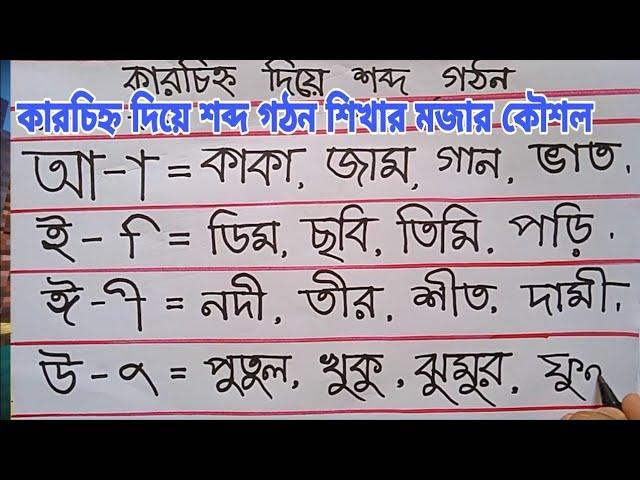 কারচিহ্ন দিয়ে শব্দ গঠন
কারচিহ্ন দিয়ে শব্দ গঠন শিখার মজার কৌশল
আ-া = কাকা, জাম, গান, ভাত.
ই - ি = ডিম, ছবি, তিমি, পড়ি.
ঈ-ী = নদী, তীর, শীত, দামী.
উ-ু = পুতুল, খুকু, ঝুমুর,